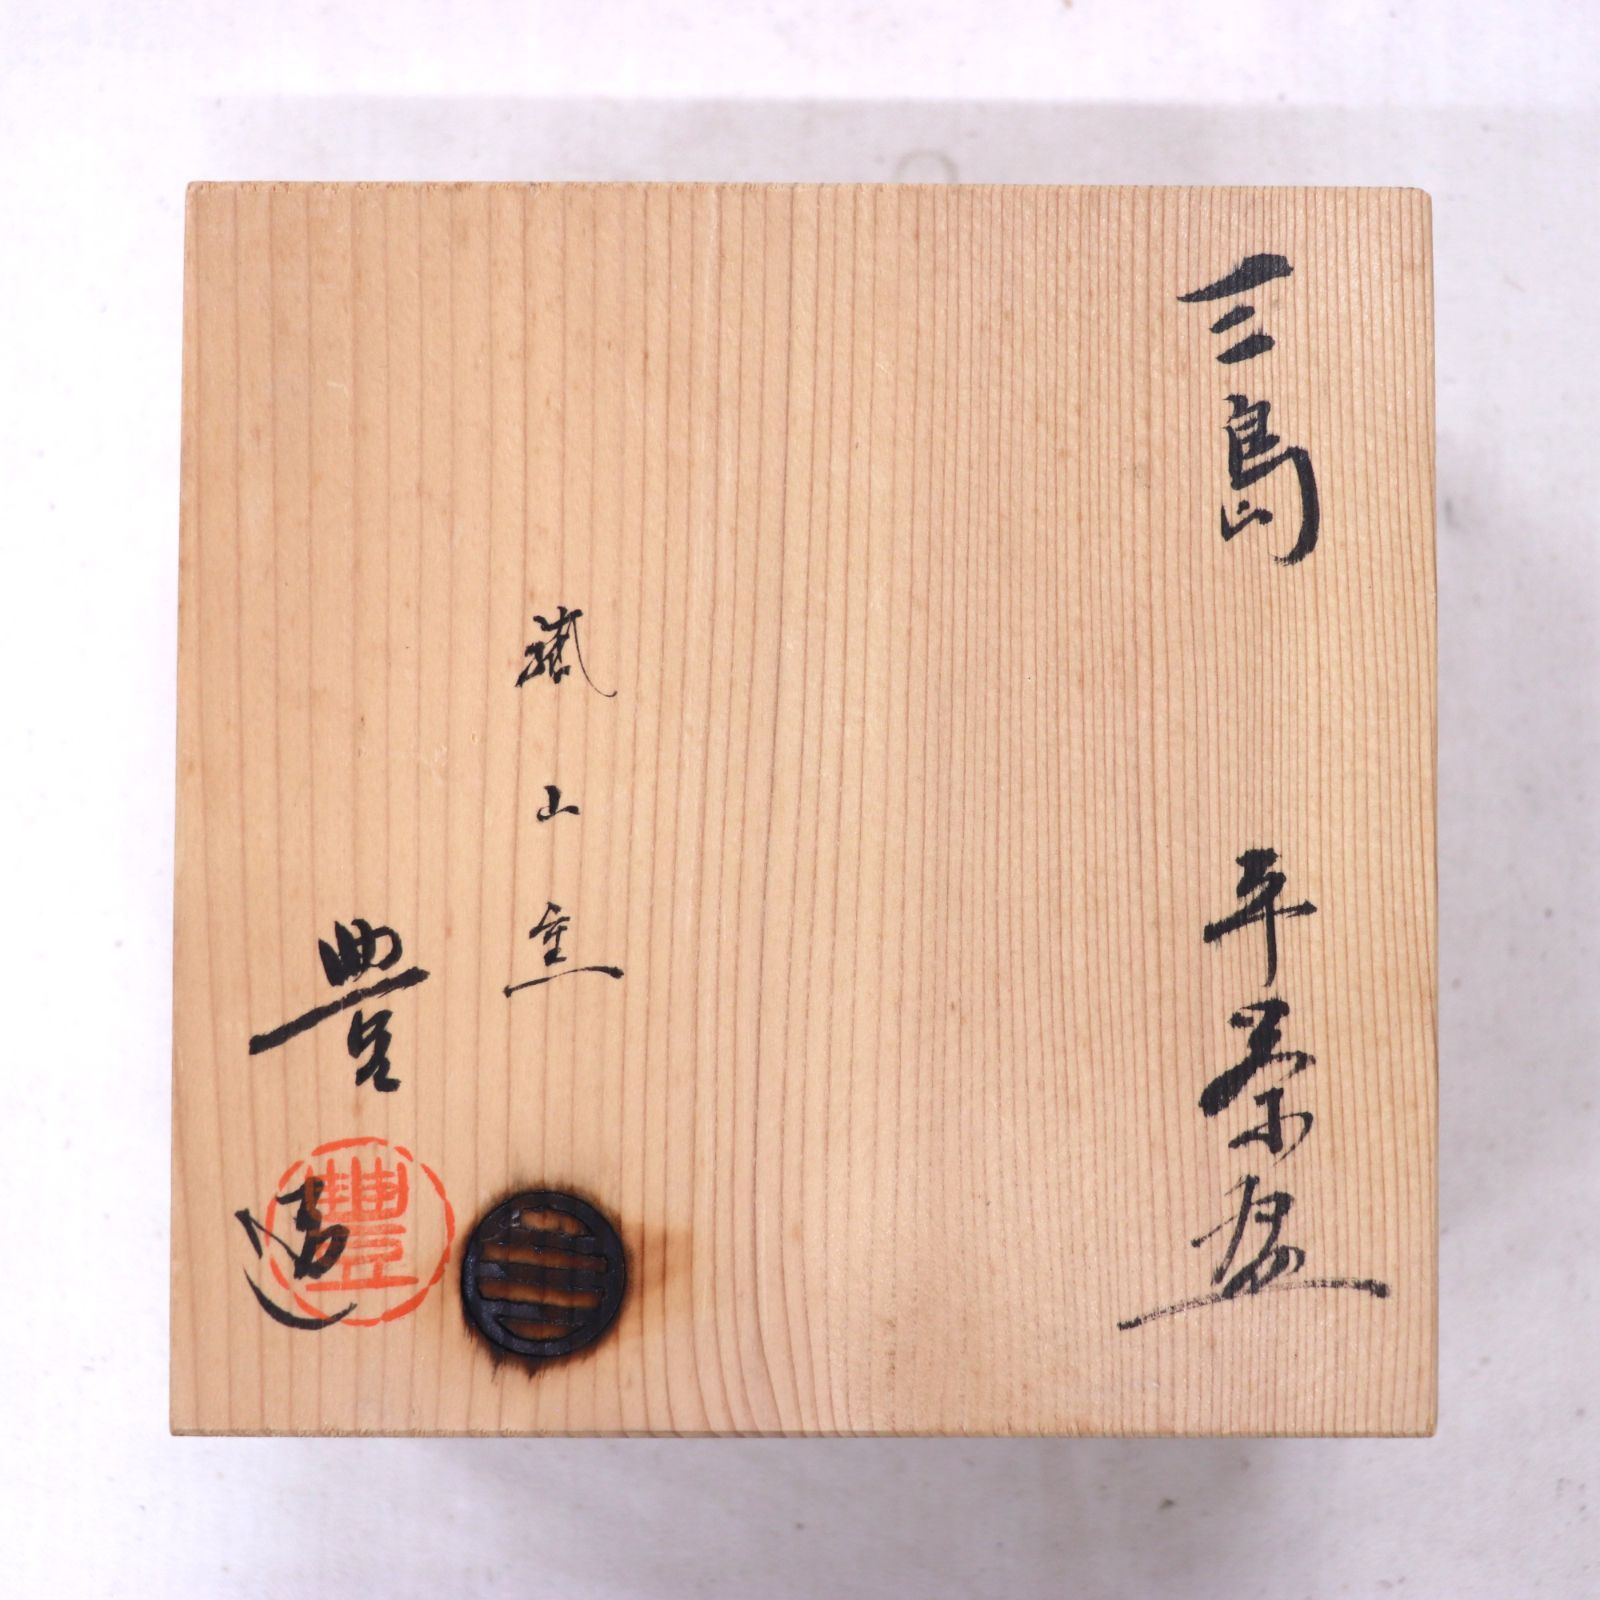 三島 平茶盌
嶯山窯
豊 造
豐